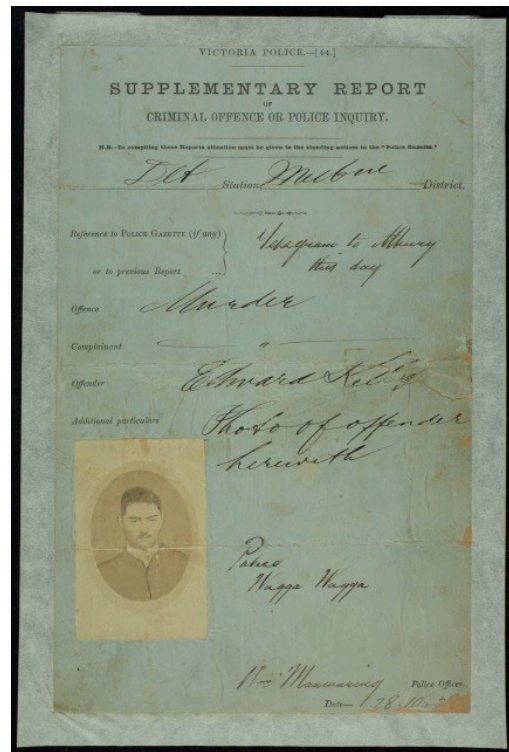 VICTORIA POLICE.—[44.]
SUPPLEMENTARY REPORT
OF
CRIMINAL OFFENCE OR POLICE INQUIRY.
N.B.—In compiling these Reports attention must be given to the standing notices in the "Police Gazette."
Det Station, Melbne District.
Reference to POLICE GAZETTE (if any)
or to previous Report ...
Telegram to Albury
this day
Offence Murder
Complainant "
Offender Edward Kelly
Additional particulars Photo of offender
herewith
Police
Wagga Wagga
Manwaring Police Officer.
Date— 28.10.7